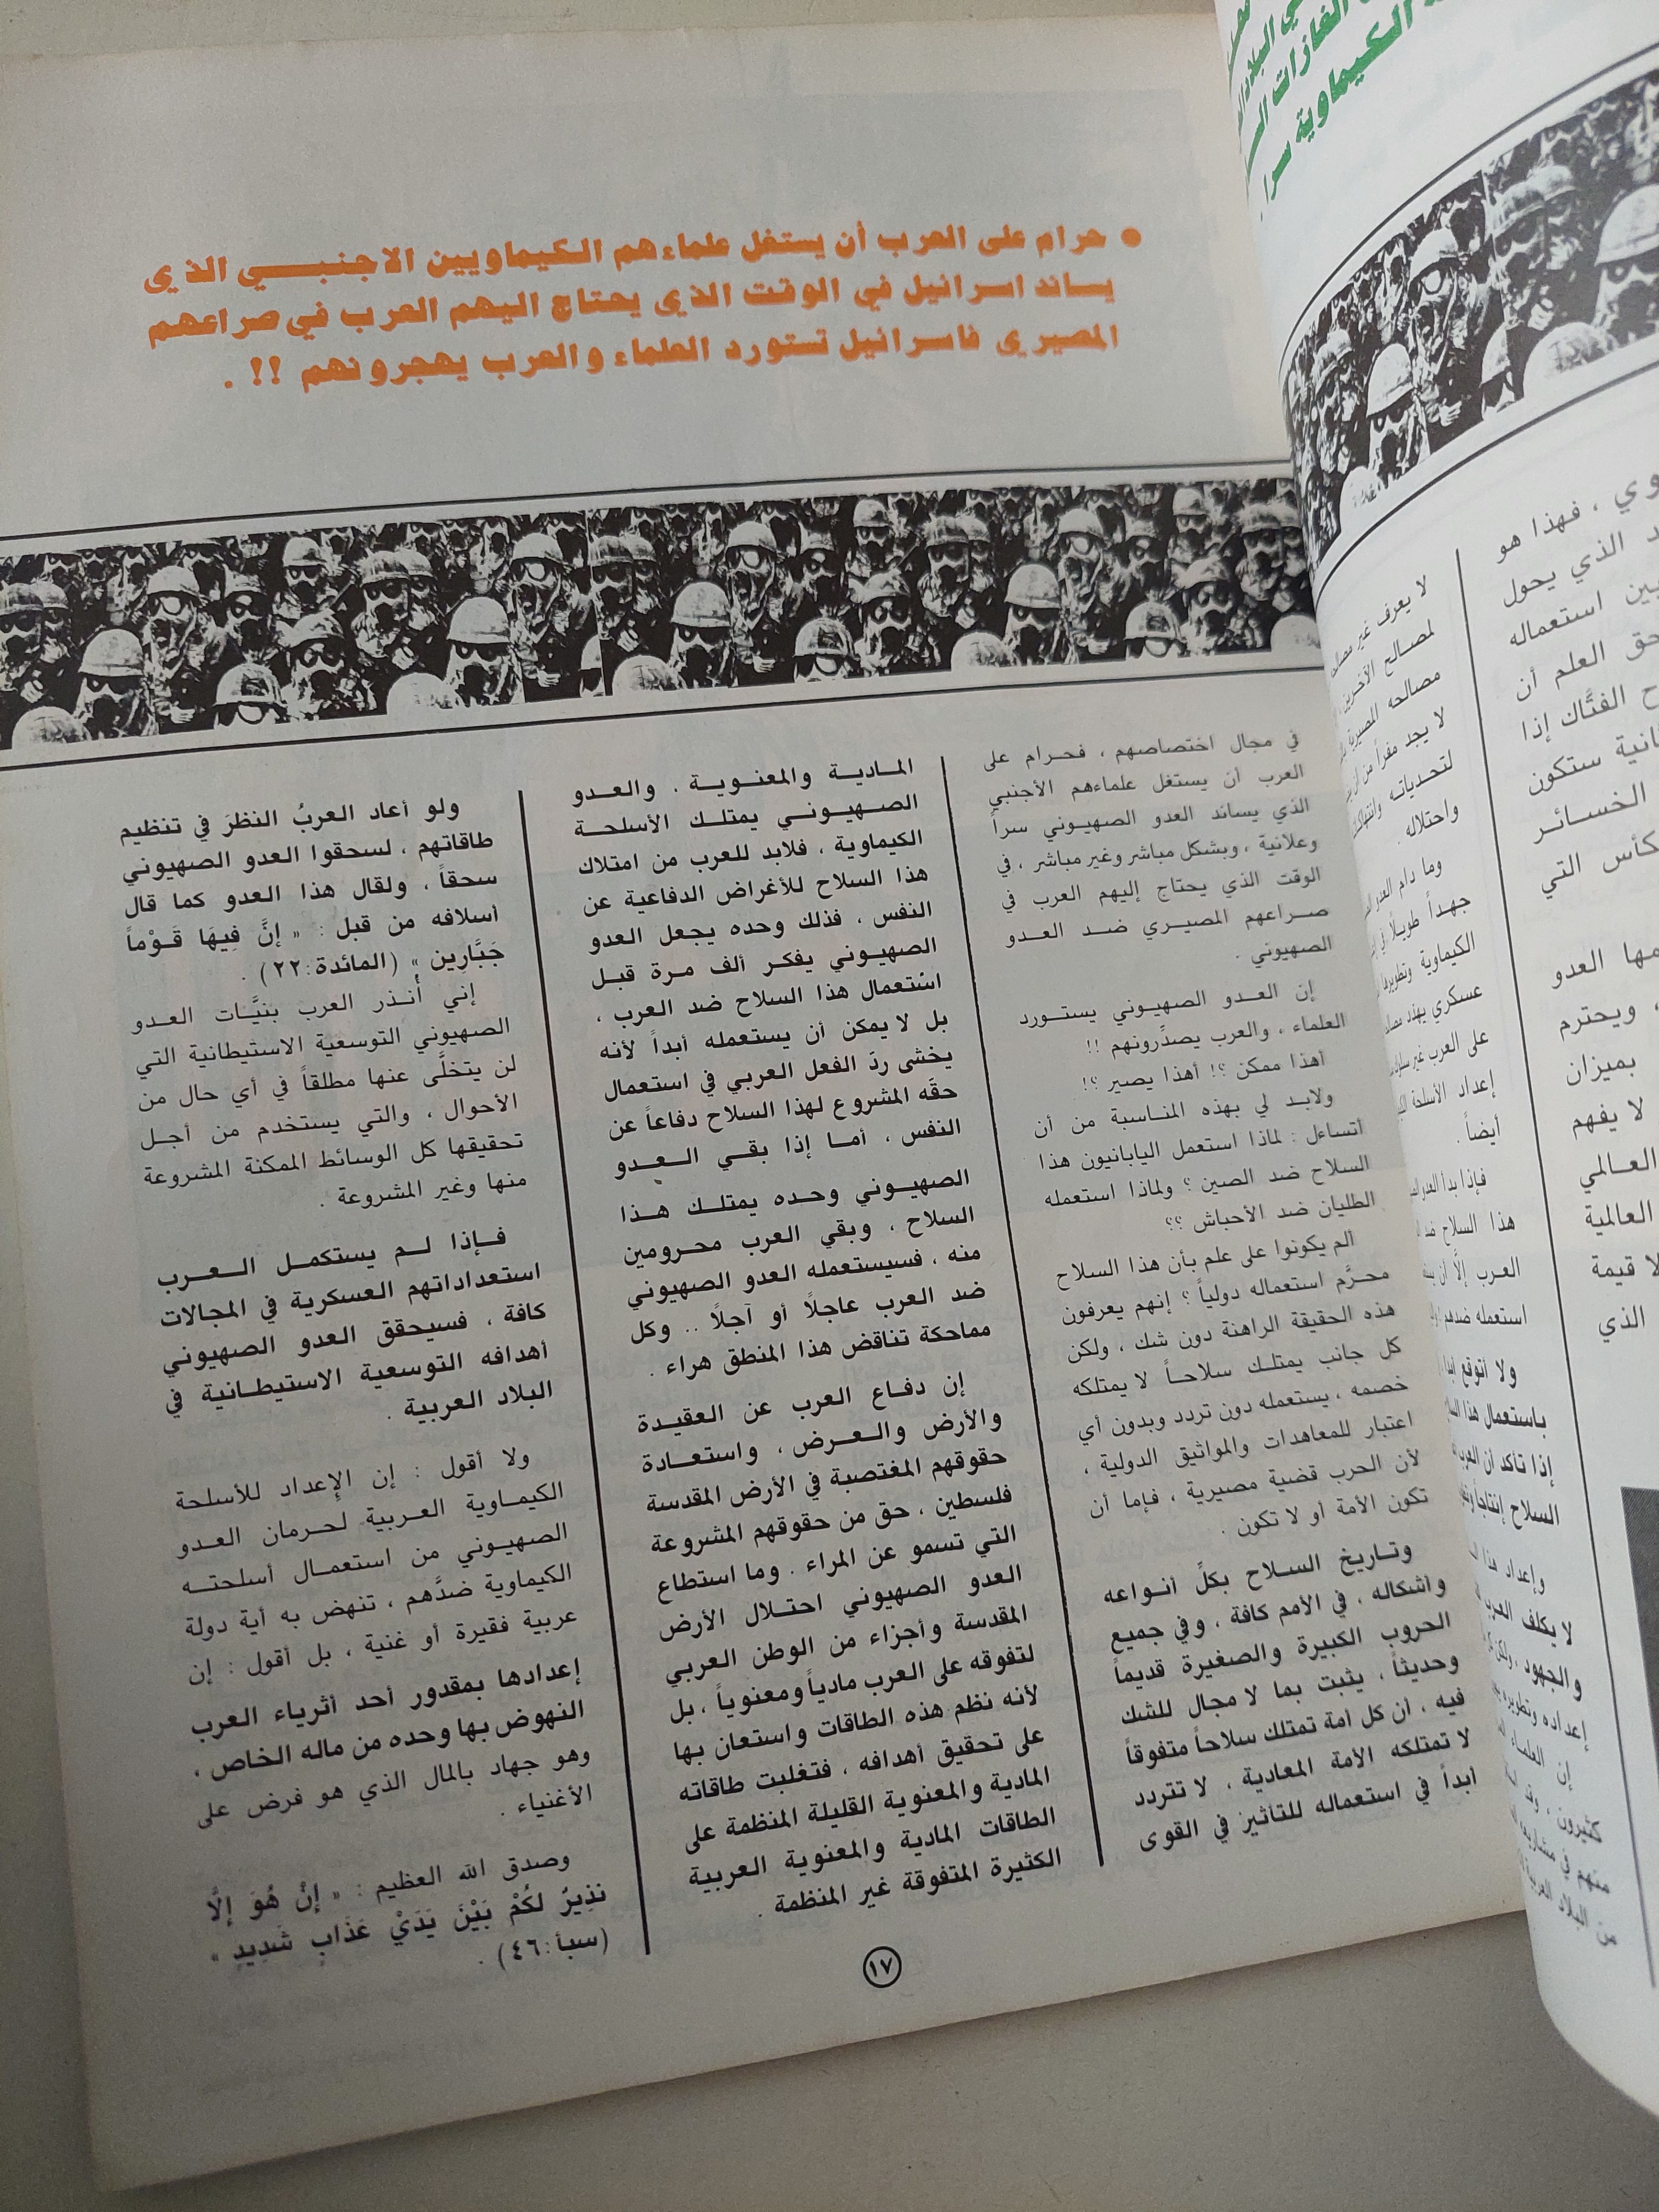 • حرام على العرب أن يستغل علماءهم الكيماويين الاجنبــي الذي
يساند اسرائيل في الوقت الذي يحتاج اليهم العرب في صراعهم
المصيري فاسرائيل تستورد العلماء والعرب يهجرونهم !! .
في مجال اختصاصهم ، فحرام على
العرب أن يستغل علماءهم الأجنبي
الذي يساند العدو الصهيوني سراً
وعلانية ، وبشكل مباشر وغير مباشر ، في
الوقت الذي يحتاج إليهم العرب في
صراعهم المصيري ضد العدو
الصهيوني .
إن العدو الصهيوني يستورد
العلماء ، والعرب يصدِّرونهم !!
أهذا ممكن ؟! أهذا يصير ؟!
ولابد لي بهذه المناسبة من أن
أتساءل : لماذا استعمل اليابانيون هذا
السلاح ضد الصين ؟ ولماذا استعمله
الطليان ضد الأحباش ؟؟
ألم يكونوا على علم بأن هذا السلاح
محرَّم استعماله دولياً ؟ إنهم يعرفون
هذه الحقيقة الراهنة دون شك ، ولكن
كل جانب يمتلك سلاحاً لا يمتلكه
خصمه ، يستعمله دون تردد وبدون أي
اعتبار للمعاهدات والمواثيق الدولية ،
لأن الحرب قضية مصيرية ، فإما أن
تكون الأمة أو لا تكون .
وتاريخ السلاح بكلِّ أنواعه
وأشكاله ، في الأمم كافة ، وفي جميع
الحروب الكبيرة والصغيرة قديماً
وحديثاً ، يثبت بما لا مجال للشك
فيه ، أن كل أمة تمتلك سلاحاً متفوقاً
لا تمتلكه الأمة المعادية ، لا تتردد
أبداً في استعماله للتأثيز في القوى
المادية والمعنوية . والعدو
الصهيوني يمتلك الأسلحة
الكيماوية ، فلابد للعرب من امتلاك
هذا السلاح للأغراض الدفاعية عن
النفس ، فذلك وحده يجعل العدو
الصهيوني يفكر ألف مرة قبل
استعمال هذا السلاح ضد العرب ،
بل لا يمكن أن يستعمله أبداً لأنه
يخشى ردَ الفعل العربي في استعمال
حقَه المشروع لهذا السلاح دفاعاً عن
النفس ، أما إذا بقي العدو
الصهيوني وحده يمتلك هذا
السلاح ، وبقي العرب محرومين
منه ، فسيستعمله العدو الصهيوني
ضد العرب عاجلاً أو آجلاً .. وكل
مماحكة تناقض هذا المنطق هراء .
إن دفاع العرب عن العقيدة
والأرض والعرض ، واستعادة
حقوقهم المغتصبة في الأرض المقدسة
فلسطين ، حق من حقوقهم المشروعة
التي تسمو عن المراء . وما استطاع
العدو الصهيوني احتلال الأرض
المقدسة وأجزاء من الوطن العربي
لتفوقه على العرب مادياً ومعنوياً ، بل
لأنه نظم هذه الطاقات واستعان بها
على تحقيق أهدافه ، فتغلبت طاقاته
المادية والمعنوية القليلة المنظمة على
الطاقات المادية والمعنوية العربية
الكثيرة المتفوقة غير المنظمة .
ولو أعاد العربُ النظرَ في تنظيم
طاقاتهم ، لسحقوا العدو الصهيوني
سحقاً ، ولقال هذا العدو كما قال
أسلافه من قبل : « إنَّ فِيهَا قَوْماً
جَبَّارِين » (المائدة:٢٢) .
إني أُنذر العرب بنيَّات العدو
الصهيوني التوسعية الاستيطانية التي
لن يتخلَّى عنها مطلقاً في أي حال من
الأحوال ، والتي يستخدم من أجل
تحقيقها كل الوسائط الممكنة المشروعة
منها وغير المشروعة .
فإذا لم يستكمل العرب
استعداداتهم العسكرية في المجالات
كافة ، فسيحقق العدو الصهيوني
أهدافه التوسعية الاستيطانية في
البلاد العربية .
ولا أقول : إن الإعداد للأسلحة
الكيماوية العربية لحرمان العدو
الصهيوني من استعمال أسلحته
الكيماوية ضدَّهم ، تنهض به أية دولة
عربية فقيرة أو غنية ، بل أقول : إن
إعدادها بمقدور أحد أثرياء العرب
النهوض بها وحده من ماله الخاص ،
وهو جهاد بالمال الذي هو فرض على
الأغنياء .
وصدق الله العظيم : « إنْ هُوَ إلَّا
نذِيرٌ لكُمْ بَيْنَ يَدَيْ عَذَابٍ شَدِيدٍ »
(سبأ:٤٦) .
١٧
الكيماوية سرا
لا يعرف غير
لصالح الآخرين
مصالحه المصيرية
لا يجد مفراً من أن
لتحدياته
واحتلاله .
وما دام العدو
جهداً طويلاً في
الكيماوية وتطويرها
عسكري يهدد
على العرب غير
إعداد الأسلحة
أيضاً .
فإذا بدأ العدو
هذا السلاح ضد
العرب إلَّا أن
استعمله ضدهم
ولا أتوقع أبداً
باستعمال هذا
إذا تأكد أن العرب
السلاح إنتاجاً
وإعداد هذا
لا يكلف العرب
والجهود ، ولكن
إعداده وتطويره
إن العلماء
كثيرون ، وقد
منهم في مشاريع
من البلاد العربية
وي ، فهذا هو
د الذي يحول
بين استعماله
حق العلم أن
ح الفتَّاك إذا
انية ستكون
الخسائر
كأس التي
مها العدو
، ويحترم
بميزان
لا يفهم
العالمي
العالمية
لا قيمة
الذي